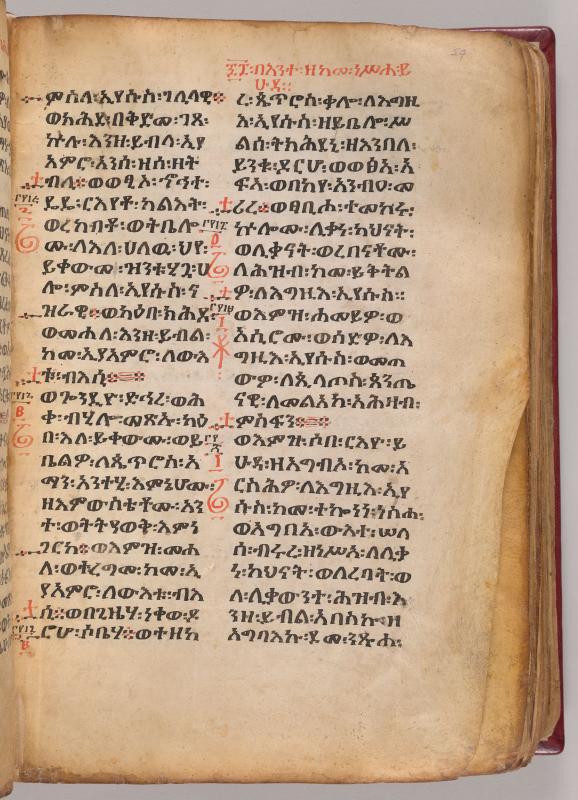 ፷፱፡በእንተ፡ዘከመ፡ነሥሐ፡ይ
ሁዳ፡
ምስለ፡ኢየሱስ፡ገሊላዊ፡
ወክሕደ፡በቅድመ፡ገጹ፡
ኵሉ፡እንዘ፡ይብል፡ኢየ
አምሮ፡አንሰ፡ዘሰ፡ዘት
ብሊ፡ወወፂኦ፡ኆኅተ፡
ርእየቶ፡ካልእት፡
ወረከብቶ፡ወትቤሎ
ሙ፡ለእለ፡ሀለዉ፡ህየ፡
ይቀውሙ፡ዝንቱ፡ሂ፡ሀ
ሎ፡ምስለ፡ኢየሱስ፡ና
ዝራዊ፡ወካዕበ፡ክሕደ
ወመሐለ፡እንዘ፡ይብል፡
ከመ፡ኢያአምሮ፡ለውእ
ቱ፡ብእሲ፡
ወጐንድዮ፡ድኅረ፡ወሕ
ቀ፡ብሂሎ፡መጽኡ፡ካዕ
በ፡እለ፡ይቀውሙ፡ወይ
ቤልዎ፡ለጴጥሮስ፡አ
ማን፡አንተሂ፡እምኔሆሙ፡
ዘእምውስቴቶሙ፡አን
ተ፡ወትትዓወቅ፡እምነ
ገርከ፡ወእምዝ፡መሐ
ለ፡ወተረግመ፡ከመ፡ኢ
ያአምሮ፡ለውእቱ፡ብእ
ሲ፡ወበጊዜሃ፡ነቀወ፡ዶ
ርሆ፡ሶቤሃ፡ወተዘከ
ረ፡ጴጥሮስ፡ቃሎ፡ለእግዚ
እ፡ኢየሱስ፡ዘይቤሎ፡ሥ
ልሰ፡ትክሕደኒ፡ዘእንበለ፡
ይንቁ፡ዶርሆ፡ወወፅአ፡አ
ፍአ፡ወበከየ፡አንብዐ፡መ
ሪረ፡ወፀቢሖ፡ተማከሩ፡
ኵሎሙ፡ሊቃነ፡ካህናት፡
ወሊቃናት፡ወረበናቶሙ፡
ለሕዝብ፡ከመ፡ይቅትል
ዎ፡ለእግዚእ፡ኢየሱስ፡
ወእምዝ፡ሐመይዎ፡ወ
አሲሮሙ፡ወሰድዎ፡ለእ
ግዚእ፡ኢየሱስ፡ወመጠ
ውዎ፡ለጲላጦስ፡ጰንጤ
ናዊ፡ለመልአከ፡አሕዛብ፡
ምስፍን
ወእምዝ፡ሶበ፡ርእየ፡ይ
ሁዳ፡ዘአግብኦ፡ከመ፡አ
ርስሕዎ፡ለእግዚእ፡ኢየ
ሱስ፡ከመ፡ተኰነነ፡ነስሐ፡
ወአግብአ፡ውእተ፡ሠላ
ሳ፡ብሩረ፡ዘነሥአ፡ለሊቃ
ነ፡ካህናት፡ወለረባናት፡ወ
ለ፡ሊቃውንተ፡ሕዝብ፡እ
ንዘ፡ይብል፡አበስኩ፡ዘ
አግባእኩ፡ደመ፡ንጹሐ፡